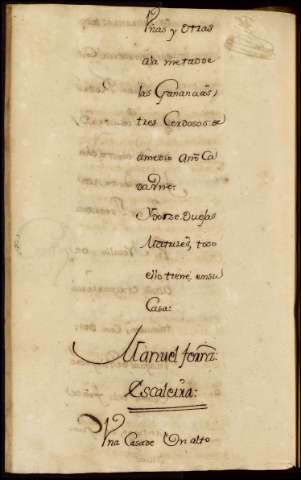 Vñas y otras
ala metad de
las Ganancias,
tres Cerdosos de
amedio Año Ca
da Vno:
Y doze Ouejas
Matures, todo
ello tiene, en su
Casa:
Manuel fern̄z
Escaleira:
Vna Casa de Vn alto